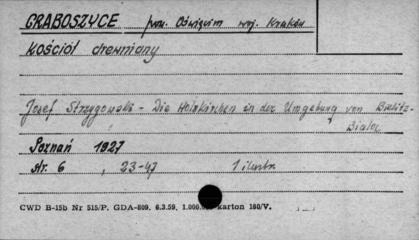 GRABOSZYCE pow. Oświęcim woj. Kraków
KOŚCIÓŁ drewniany
Josef Strzygowski - Die Holzkirchen in der Umgebung von Bielitz-
Biala
Poznań 1927
str. 6 , 23-47 1 ilustr.
CWD B-15b Nr 515/P. GDA-809. 6.3.59. 1.000. karton 160/V.